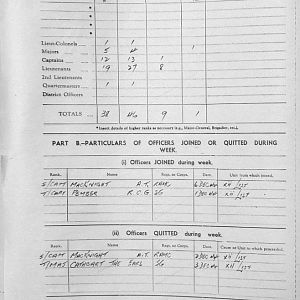 Lieut-Colonels 1 1
Majors 5 4
Captains 12 13 1
Lieutenants 19 27 8
2nd Lieutenants
Quartermasters 1 1
District Officers
TOTALS 38 46 9 1
*Insert details of higher ranks as necessary (e.g., Major-General, Brigadier, etc.).
PART B.—PARTICULARS OF OFFICERS JOINED OR QUITTED DURING WEEK.
(i) Officers JOINED during week.
Rank. Name. Regt. or Corps. Date. Unit from which joined.
S/CAPT MACKNIGHT A.T. RAMC 6 DEC 44 XII/1ST
T/CAPT PEMBER R.C.G. SG
(ii) Officers QUITTED during week.
Rank. Name. Regt. or Corps. Date. Cause or Unit to which proceeded.
S/CAPT MACKNIGHT A.T. RAMC DEC 44 XII/1ST
T/MAJ CATHCART THE EARL S/G DEC 44